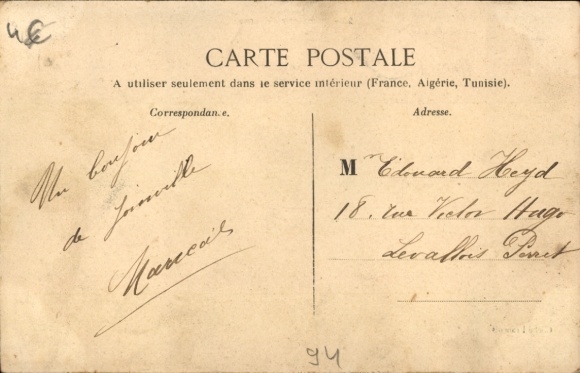 4€
CARTE POSTALE
A utiliser seulement dans le service intérieur (France, Algérie, Tunisie).
Correspondan.e.
Un bonjour
de Joinville
Adresse.
M r Edouard Heyd
18. rue Victor Hugo
Levallois Perret
94